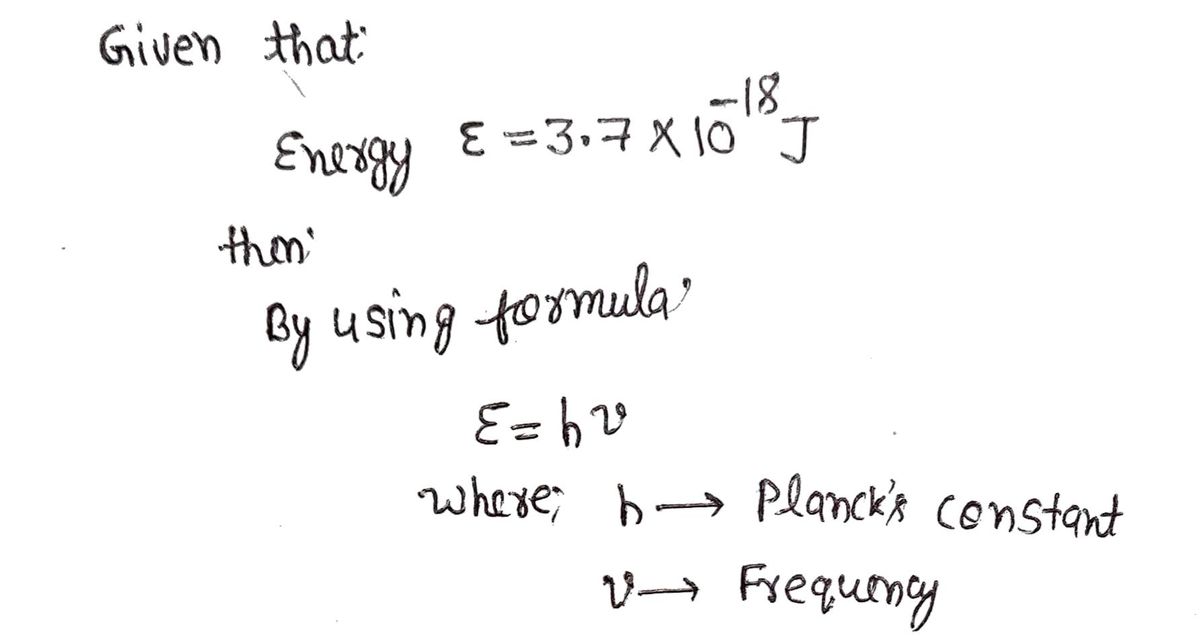 Given that:
Energy ε = 3.7 × 10⁻¹⁸ J
then:
By using formula,
ε = hν
where; h → Planck's constant
ν → Frequency